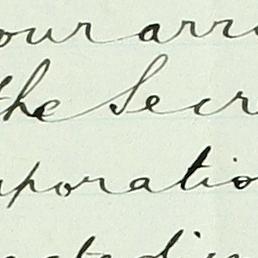 our arr
the Secr
rporatio